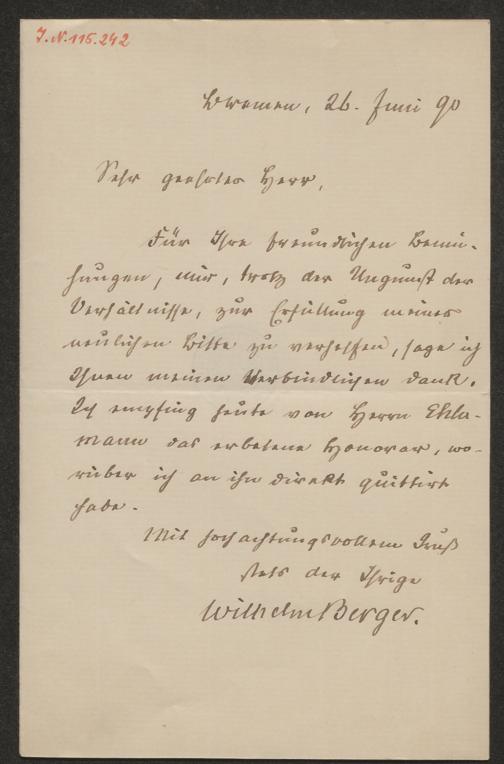 J.N. 115.242
Bremen, 26. Juni 90
Sehr geehrter Herr,
Für Ihre freundlichen Bemü-
hungen, mir, trotz der Ungunst der
Verhältnisse, zur Erfüllung meiner
neulichen Bitte zu verhelfen, sage ich
Ihnen meinen verbindlichen Dank.
Ich empfing heute von Herrn
mann das erbetene Honorar, wo-
rüber ich an ihn direkt quittirt
habe.
Mit hochachtungsvollem Gruß
stets der Ihrige
Wilhelm Berger.